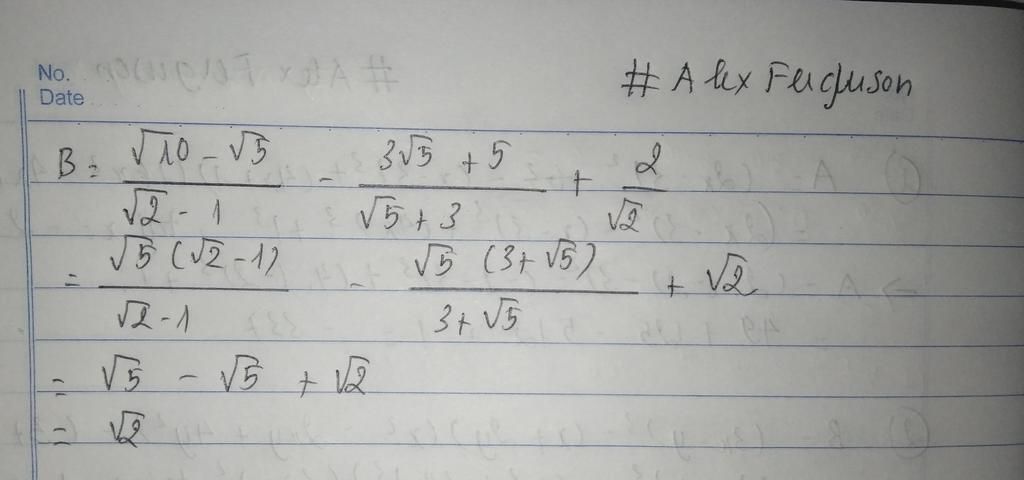 No.
Date
# Alex Ferguson
B = (√10 - √5)/(√2 - 1) - (3√5 + 5)/(√5 + 3) + 2/√2
= (√5 (√2 - 1))/(√2 - 1) - (√5 (3 + √5))/(3 + √5) + √2
= √5 - √5 + √2
= √2